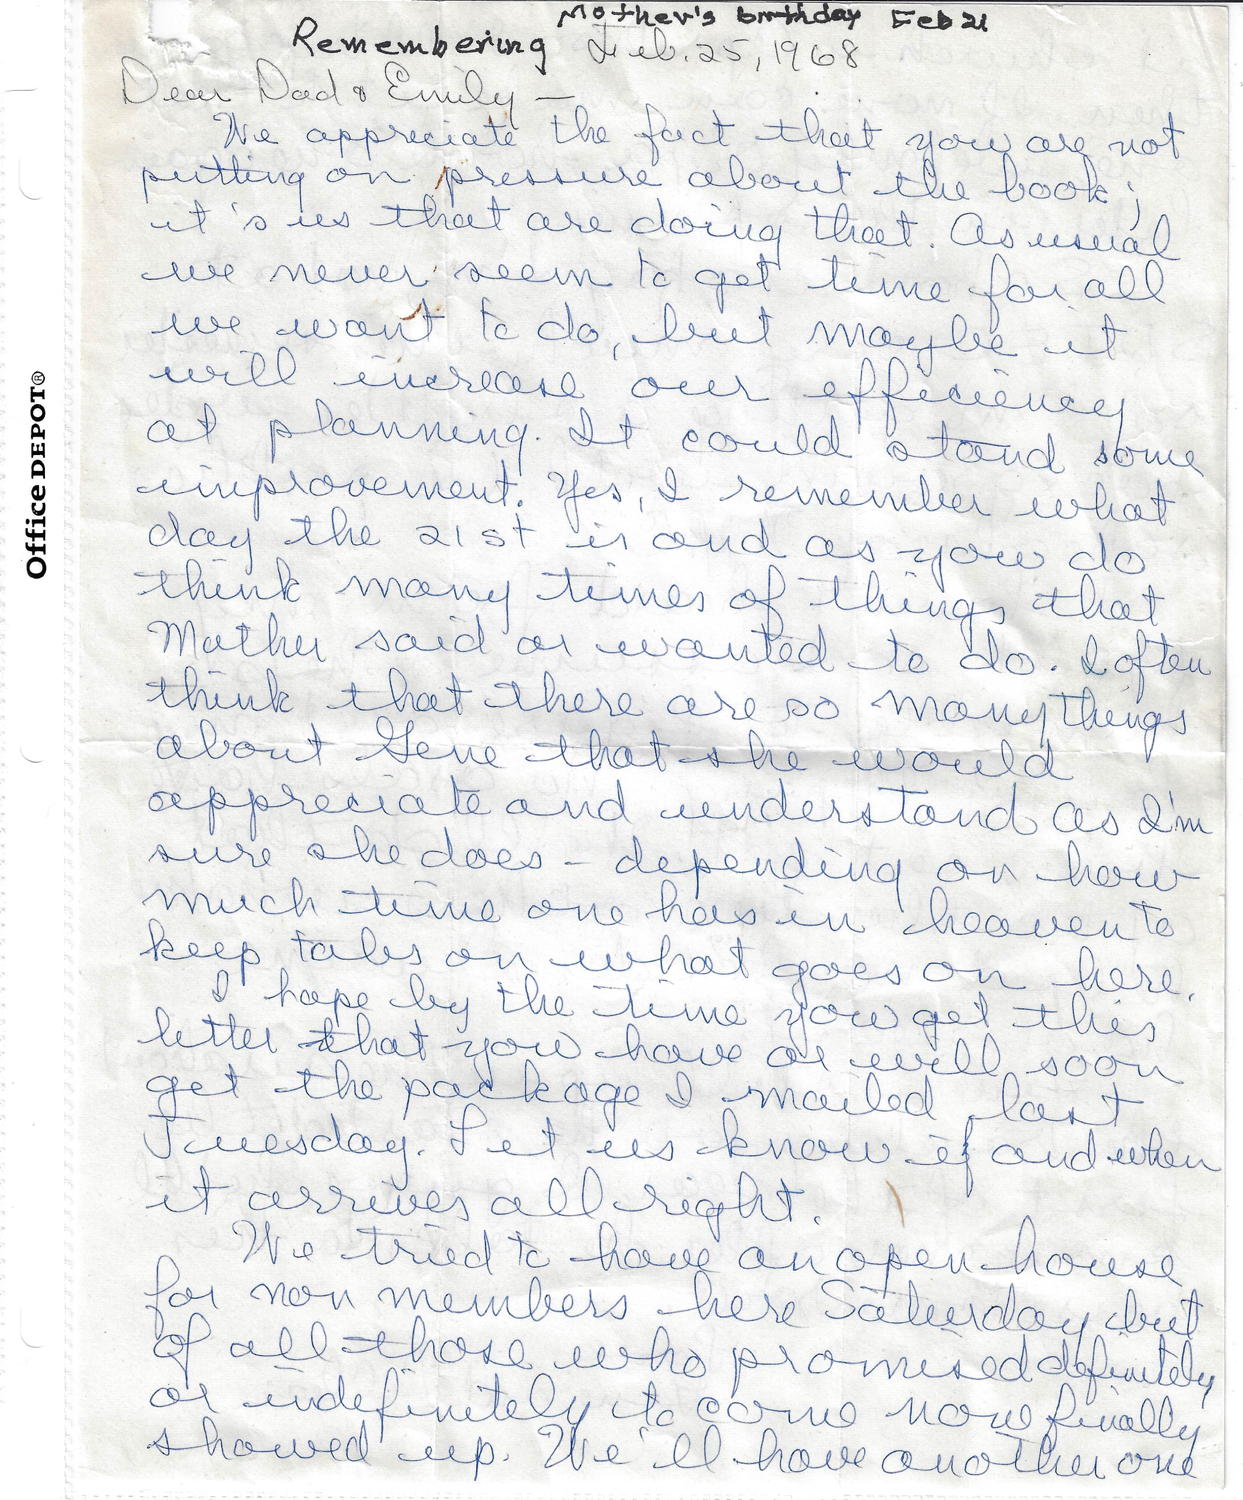 Mother's birthday Feb 21
Remembering Feb. 25, 1968
Dear Dad & Emily —
We appreciate the fact that you are not
putting on pressure about the book;
it's us that are doing that. As usual
we never seem to get time for all
we want to do, but maybe it
will increase our efficiency
at planning. It could stand some
improvement. Yes, I remember what
day the 21st is and as you do
think many times of things that
Mother said or wanted to do. I often
think that there are so many things
about Gene that she would
appreciate and understand as I'm
sure she does – depending on how
much time one has in heaven to
keep tabs on what goes on here.
I hope by the time you get this
letter that you have or will soon
get the package I mailed last
Tuesday. Let us know if and when
it arrives all right.
We tried to have an open house
for non members here Saturday but
of all those who promised definitely
or indefinitely to come none finally
showed up. We'll have another one
Office DEPOT®